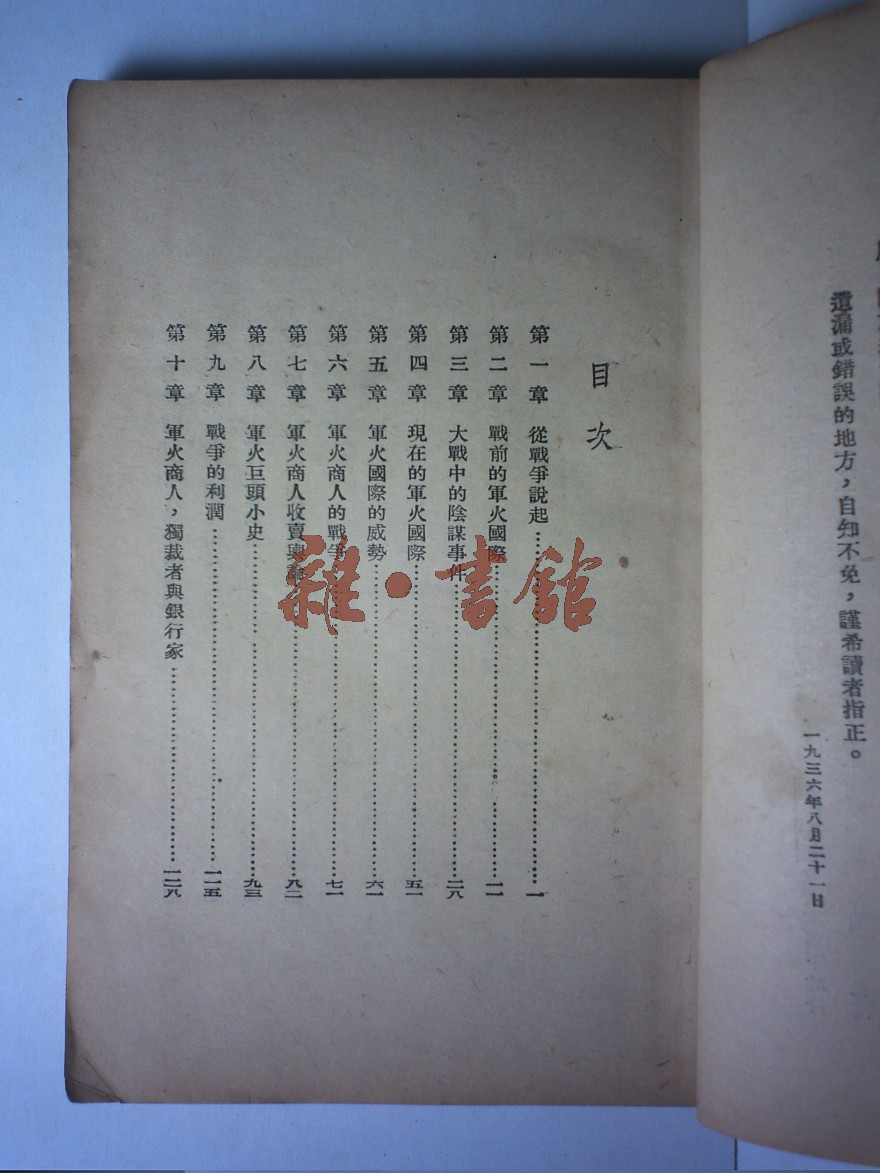 遺漏或錯誤的地方，自知不免，謹希讀者指正。
一九三六年八月二十一日
目次
第一章 從戰爭說起……一
第二章 戰前的軍火國際……一一
第三章 大戰中的陰謀事件……二八
第四章 現在的軍火國際……五一
第五章 軍火國際的威勢……六一
第六章 軍火商人的戰爭……七一
第七章 軍火商人收賣輿論……八二
第八章 軍火巨頭小史……九三
第九章 戰爭的利潤……一一五
第十章 軍火商人，獨裁者與銀行家……一二八
雜·書館